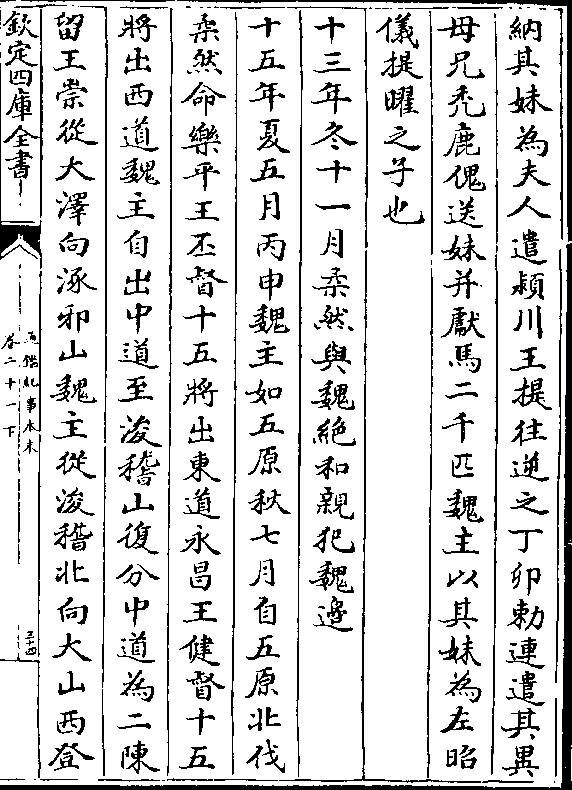 納其妹為夫人遣潁川王提往逆之丁卯勅連遣其異
母兄禿鹿傀送妹并獻馬二千匹魏主以其妹為左昭
儀提曜之子也
十三年冬十一月柔然與魏絶和親犯魏邊
十五年夏五月丙申魏主如五原秋七月自五原北伐
柔然命樂平王丕督十五將出東道永昌王健督十五
將出西道魏主自出中道至浚稽山復分中道為二陳
留王崇從大澤向涿邪山魏主從浚稽北向大山西登
欽定四庫全書
通鑑紀事本末
卷二十一下
三十四